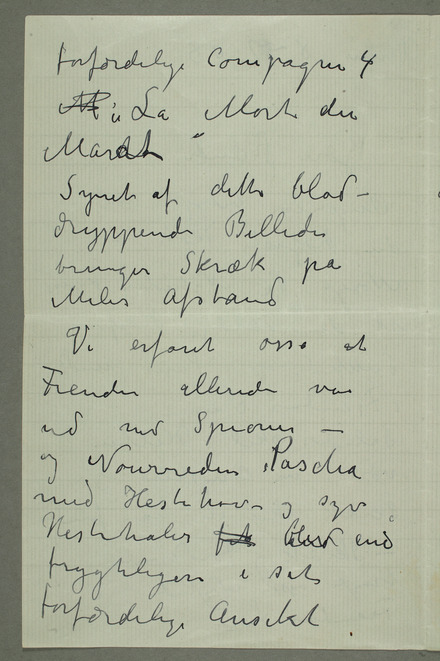 forfærdelige Compagni 4
M i „La Mort du
Marat"
Synet af dette blod-
dryppende Billede
bringer Skræk på
Miles Afstand
Vi erfaret osso at
Fienden allerede var
ud med Spioner —
og Nourreden Pascha
med Hestehov og syv
Hestehaler blev end
frygteligere i sit
forfærdelige Ansikt.